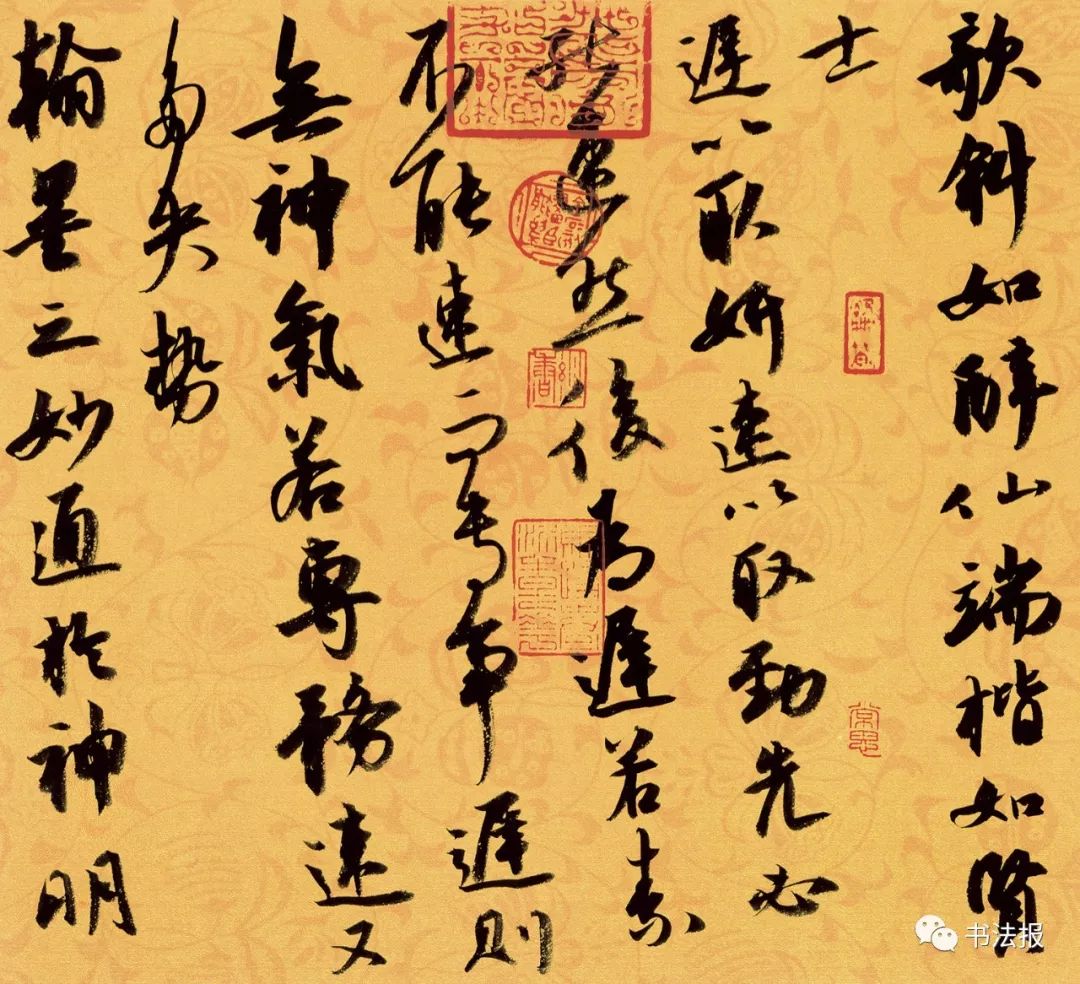 欹斜如醉仙端楷如賢
士
遲以取妍速以取勁先必
能速然後為遲若素
不能速而專事遲則
無神氣若專務速又
多失勢
翰墨之妙通於神明
书法报